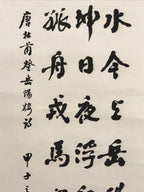 水今上岳
坤日夜浮
孤舟戎馬
唐杜甫登岳陽樓詩 甲子